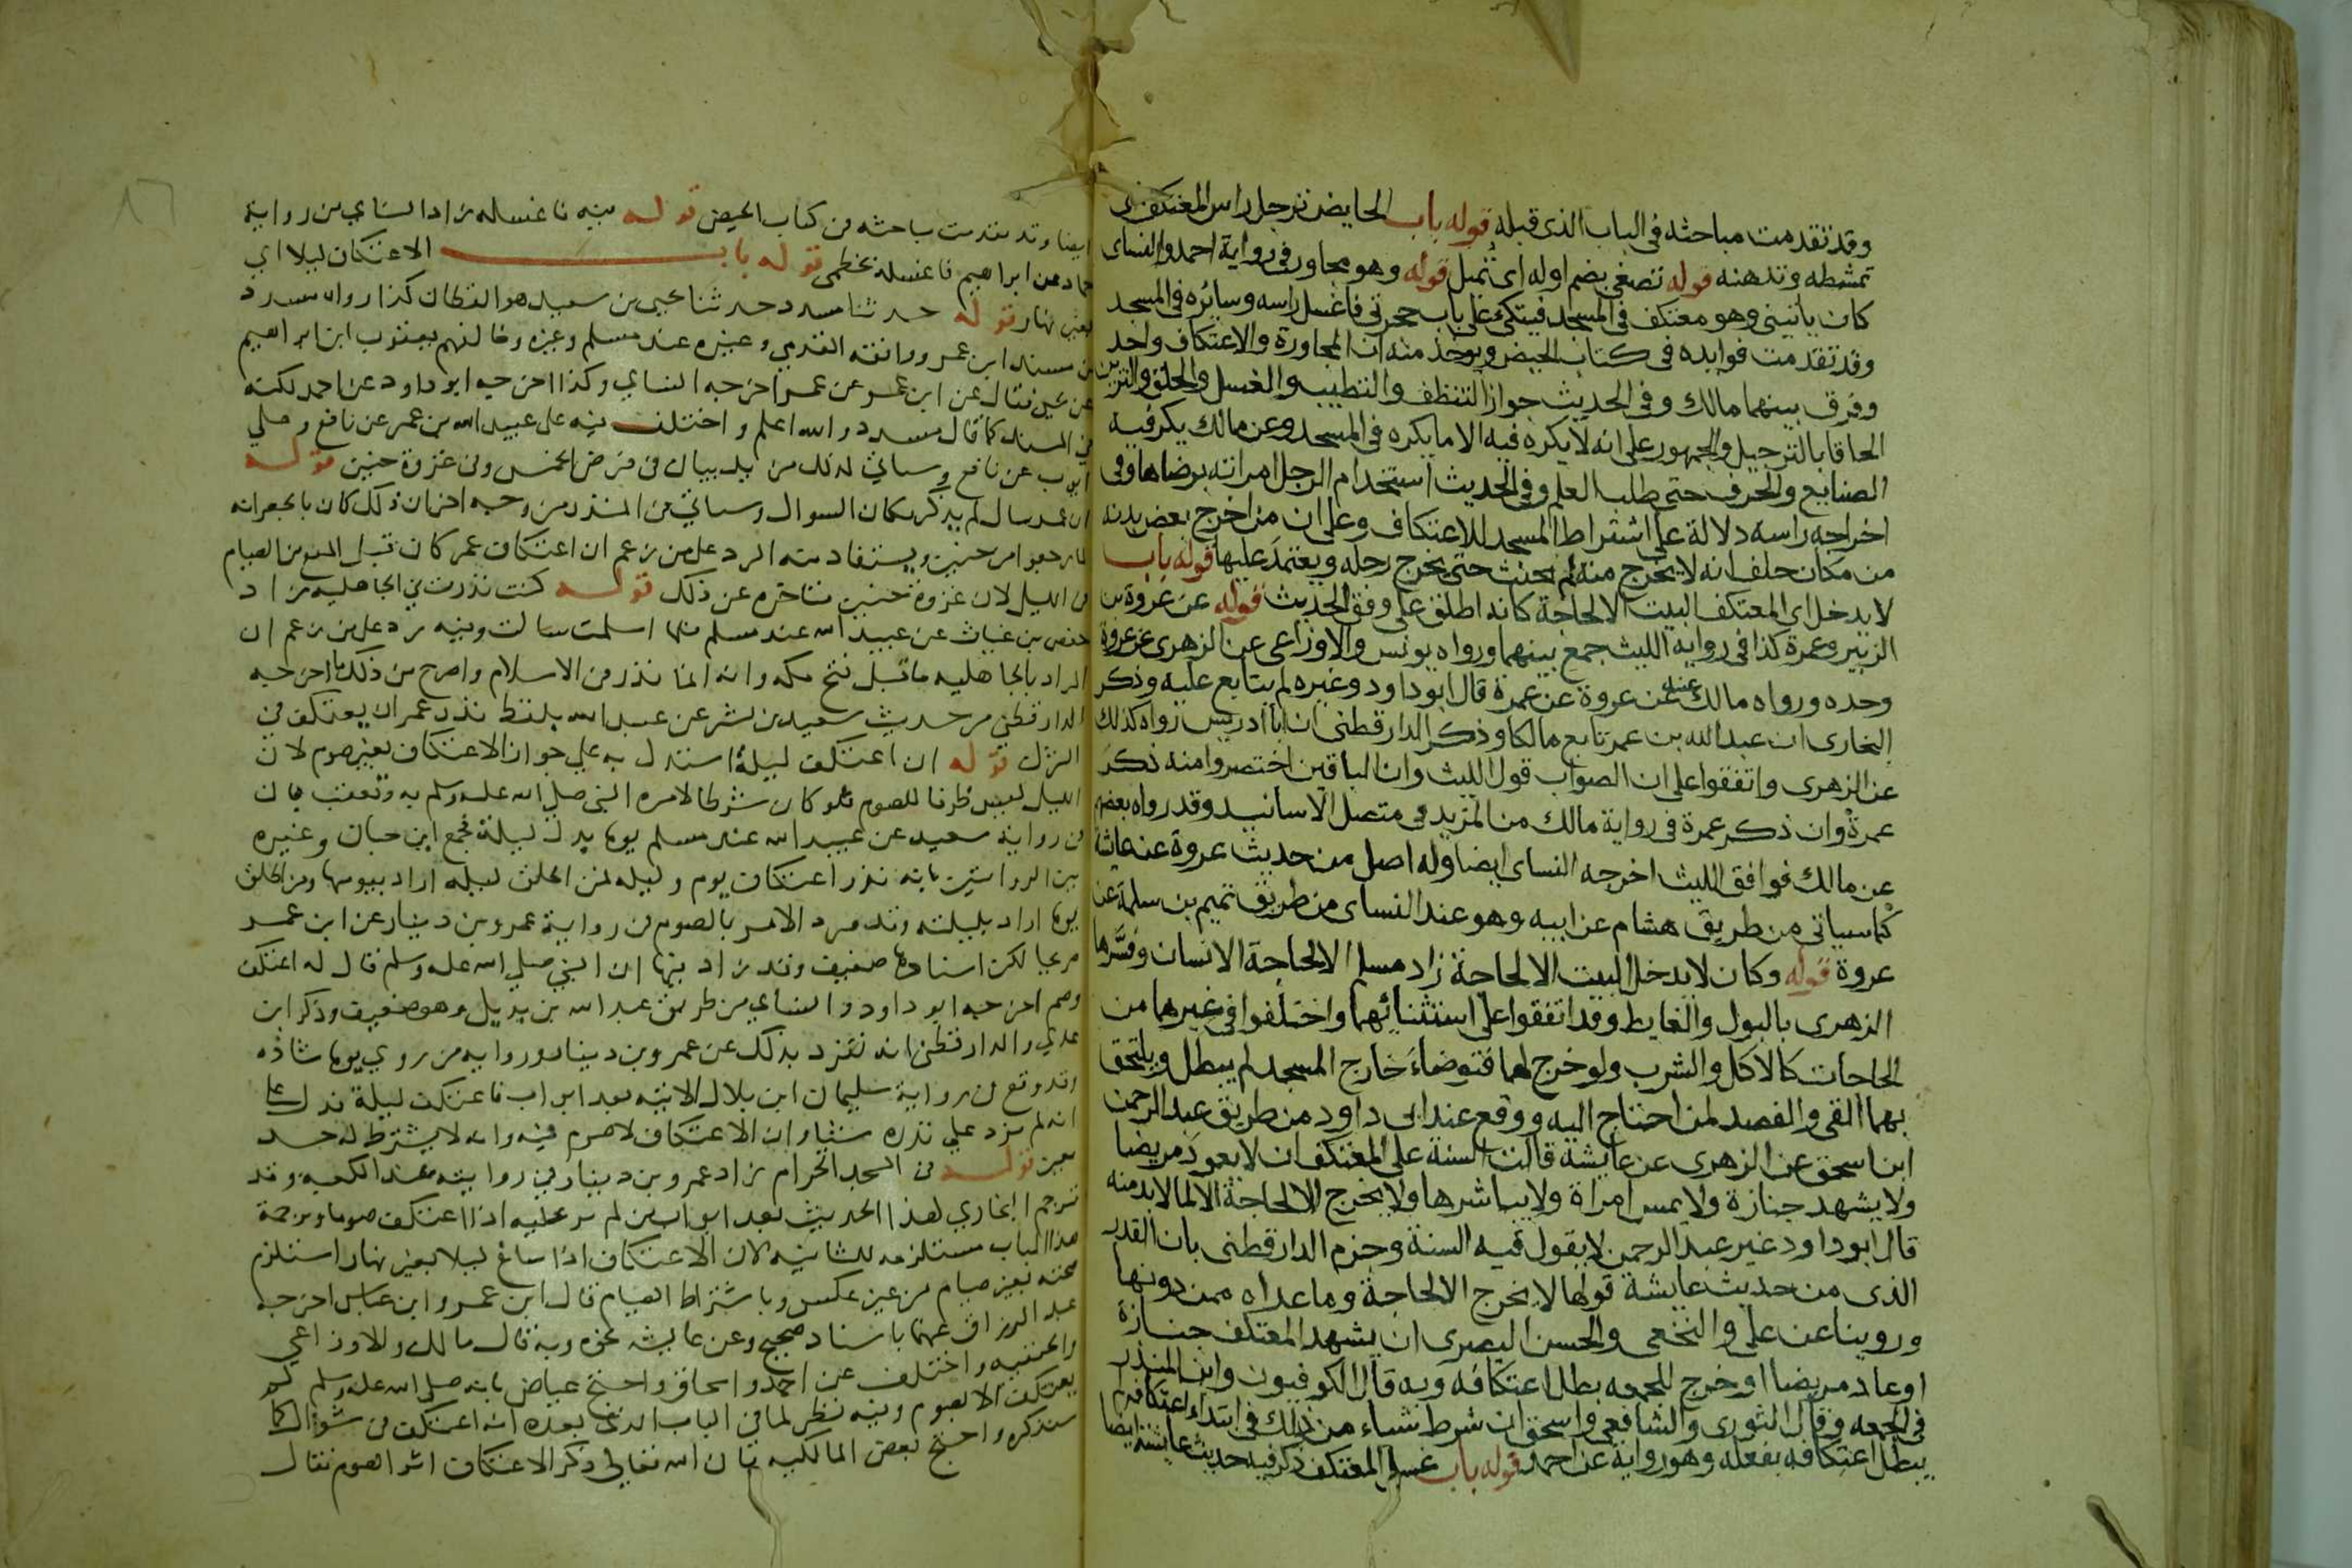 وقد تقدمت مباحثه في الباب الذي قبله قوله باب الحايض ترجل راس المعتكف اى
تمشطه وتدهنه قوله تصغى بضم اوله اى تميل قوله وهو مجاور في رواية احمد والنساى
كان ياتينى وهو معتكف في المسجد فيتكئ على باب حجرتى فاغسل راسه وسائره في المسجد
وقد تقدمت فوايده في كتاب الحيض ويوخذ منه ان المجاورة والاعتكاف واحد
وفرق بينهما مالك وفي الحديث جواز التنظف والتطيب والغسل والحلق والتزين
الحاقا بالترجيل والجمهور على انه لا يكره فيه الا ما يكره في المسجد وعن مالك يكره فيه
الصنايع والحرف حتى طلب العلم وفي الحديث استخدام الرجل امراته برضاها وفي
اخراجه راسه دلالة على اشتراط المسجد للاعتكاف وعلى ان من اخرج بعض بدنه
من مكان حلف انه لا يخرج منه لم يحنث حتى يخرج رجله ويعتمد عليها قوله باب
لا يدخل اى المعتكف البيت الا لحاجة كانه اطلق على وفق الحديث قوله عن عروة بن
الزبير وعمرة كذا في رواية الليث جمع بينهما ورواه يونس والاوزاعى عن الزهرى عن عروة
وحده ورواه مالك عنه عن عروة عن عمرة قال ابو داود وغيره لم يتابع عليه وذكر
البخارى ان عبد الله بن عمر تابع مالكا وذكر الدارقطنى ان ابا ادريس رواه كذلك
عن الزهرى واتفقوا على ان الصواب قول الليث وان الباقين اختصروا منه ذكر
عمرة وان ذكر عمرة في رواية مالك من المزيد في متصل الاسانيد وقد رواه بعضهم
عن مالك فوافق الليث اخرجه النساى ايضا وله اصل من حديث عروة عن عائشة
كما سياتى من طريق هشام عن ابيه وهو عند النساى من طريق تميم بن سلمة عن
عروة قوله وكان لا يدخل البيت الا لحاجة زاد مسلم الا لحاجة الانسان وفسرها
الزهرى بالبول والغايط وقد اتفقوا على استثنائهما واختلفوا في غيرهما من
الحاجات كالاكل والشرب ولو خرج لهما فتوضاء خارج المسجد لم يبطل ويلتحق
بهما القى والفصد لمن احتاج اليه ووقع عند ابى داود من طريق عبد الرحمن
ابن اسحق عن الزهرى عن عايشة قالت السنة على المعتكف ان لا يعود مريضا
ولا يشهد جنازة ولا يمس امراة ولا يباشرها ولا يخرج لحاجة الا لما لا بد منه
قال ابو داود غير عبد الرحمن لا يقول فيه السنة وجزم الدارقطنى بان القدر
الذى من حديث عايشة قولها لا يخرج الا لحاجة وما عداه ممن دونها
وروينا عن على والنخعى والحسن البصرى ان يشهد المعتكف جنازة
او عاد مريضا او خرج للجمعه بطل اعتكافه وبه قال الكوفيون وابن المنذر
في الجمعه وقال الثورى والشافعى واسحق ان شرط شياء من ذلك في ابتداء اعتكافه لم
يبطل اعتكافه بفعله وهو رواية عن احمد قوله باب غسل المعتكف ذكر فيه حديث عايشة ايضا
ايضا وقد تقدمت مباحثه في كتاب الحيض قوله فيه فاغسله زاد النساي من رواية
حماد عن ابراهيم فاغسله بخطمى قوله باب الاعتكاف ليلا اي
بغير نهار قوله حدثنا مسدد حدثنا يحيى بن سعيد هو القطان كذا رواه مسدد
من مسند ابن عمر ووافقه المقدمي وغيره عند مسلم وغيره وخالفهم يعقوب ابن ابراهيم
عن يحيى فقال عن ابن عمر عن عمر اخرجه النساي وكذا اخرجه ابو داود عن احمد لكنه
في المسند كما قال مسدد والله اعلم واختلف فيه على عبيد الله بن عمر عن نافع وعلي
ايوب عن نافع وسياتي لذلك مزيد بيان في فرض الخمس وفي غزوة حنين قوله
ان عمر سال لم يذكر مكان السوال وسياتي في النذر من وجه اخر ان ذلك كان بالجعرانه
لما رجعوا من حنين ويستفاد منه الرد على من زعم ان اعتكاف عمر كان قبل المنع من الصيام
في الليل لان غزوة حنين متاخرة عن ذلك قوله كنت نذرت في الجاهليه زاد
حفص بن غياث عن عبيد الله عند مسلم فلما اسلمت سالت وفيه رد على من زعم ان
المراد بالجاهليه ما قبل فتح مكه وانه انما نذر في الاسلام واصرح من ذلك ما اخرجه
الدارقطني من حديث سعيد بن بشر عن عبيد الله بلفظ نذر عمر ان يعتكف في
الشرك قوله ان اعتكف ليلة استدل به علي جواز الاعتكاف بغير صوم لان
الليل ليس ظرفا للصوم فلو كان شرطا لامره النبي صلي الله عليه وسلم به وتعقب بان
في رواية سعيد عن عبيد الله عند مسلم يوما بدل ليلة فجمع ابن حبان وغيره
بين الروايتين بانه نذر اعتكاف يوم وليله فمن اطلق ليله اراد بيومها ومن اطلق
يوما اراد بليلته وقد ورد الامر بالصوم في رواية عمرو بن دينار عن ابن عمر
صريحا لكن اسنادها ضعيف وقد زاد فيها ان النبي صلي الله عليه وسلم قال له اعتكف
وصم اخرجه ابو داود والنساي من طريق عبد الله بن بديل وهو ضعيف وذكر ابن
عدي والدارقطني انه تفرد بذلك عن عمرو بن دينار ورواية من روي يوما شاذه
وقد وقع في رواية سليمان ابن بلال الاتيه بعد ابواب فاعتكف ليلة فدل على
انه لم يزد علي نذره شيئا وان الاعتكاف لا صوم فيه وانه لا يشترط له حد
معين قوله في المسجد الحرام زاد عمرو بن دينار في روايته عند الكعبه وقد
ترجم البخاري لهذا الحديث بعد ابواب من لم ير عليه اذا اعتكف صوما وترجمة
هذا الباب مستلزمه للثانيه لان الاعتكاف اذا ساغ ليلا بغير نهار استلزم
صحته بغير صيام من غير عكس وباشتراط الصيام قال ابن عمر وابن عباس اخرجه
عبد الرزاق عنهما باسناد صحيح وعن عايشه نحوه وبه قال مالك والاوزاعي
والحنفيه واختلف عن احمد واسحاق واحتج عياض بانه صلي الله عليه وسلم لم
يعتكف الا بصوم وفيه نظر لما في الباب الذي بعده انه اعتكف في شوال كما
سنذكره واحتج بعض المالكيه بان الله تعالي ذكر الاعتكاف اثر الصوم فقال